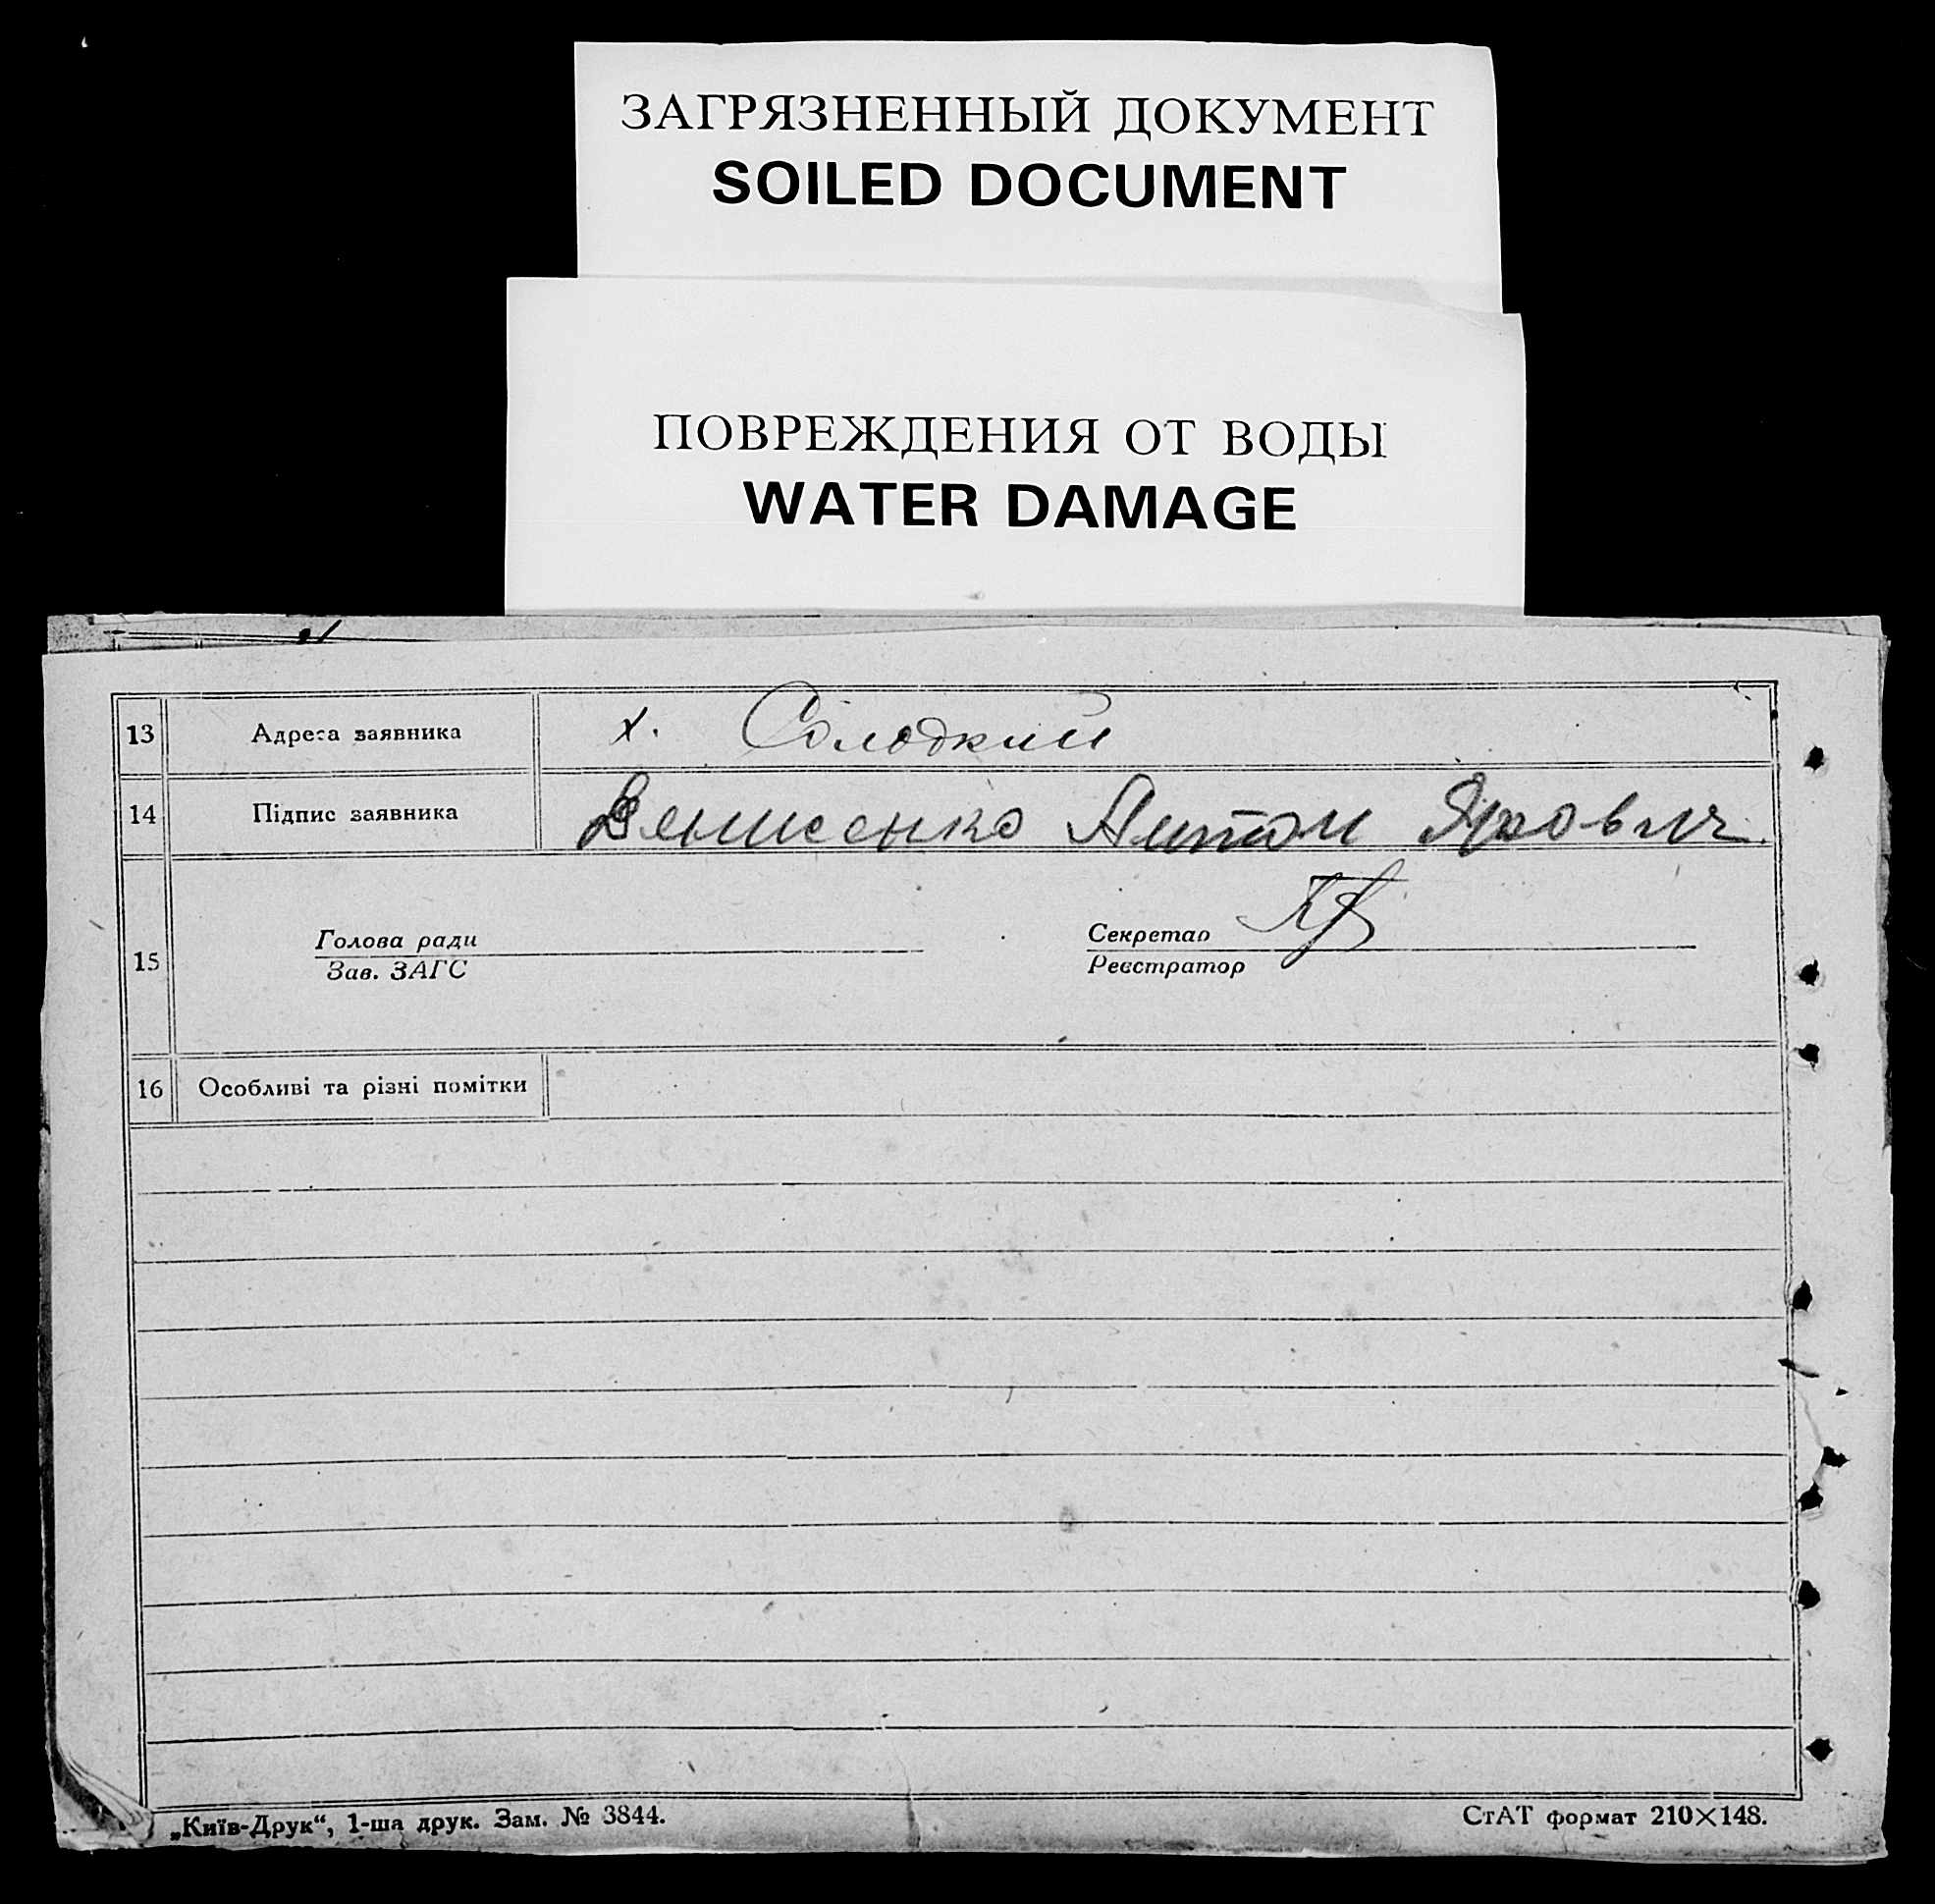 ЗАГРЯЗНЕННЫЙ ДОКУМЕНТ
SOILED DOCUMENT
ПОВРЕЖДЕНИЯ ОТ ВОДЫ
WATER DAMAGE
13 Адреса заявника х. Солодкий
14 Підпис заявника Денисенко Антон
15 Голова ради Секретар
Зав. ЗАГС Реєстратор
16 Особливі та різні помітки
„Київ-Друк“, 1-ша друк. Зам. № 3844. СтАТ формат 210×148.